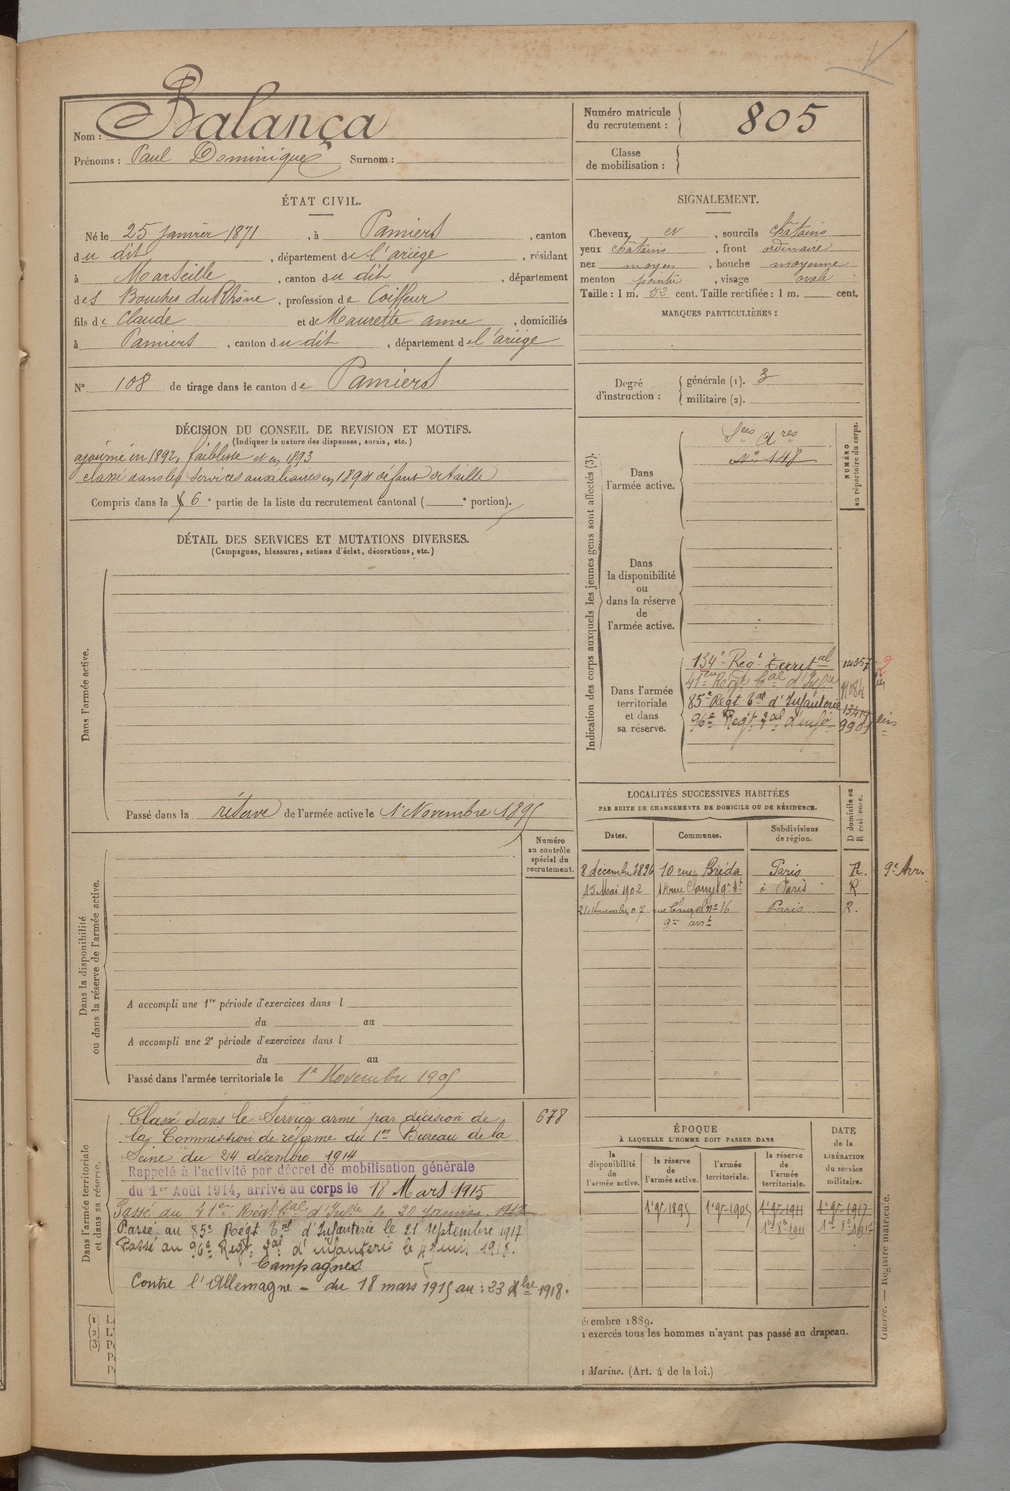 Nom : Balança
Prénoms : Paul Dominique Surnom :
Numéro matricule
du recrutement : 805
Classe
de mobilisation :
ÉTAT CIVIL.
Né le 25 janvier 1871, à Pamiers, canton
du dit, département de l'ariège, résidant
à Marseille, canton du dit, département
des Bouches du Rhône, profession de Coiffeur
fils de Claude et de Maurette anne, domiciliés
à Pamiers, canton du dit, département de l'ariège
N° 108 de tirage dans le canton de Pamiers
SIGNALEMENT.
Cheveux et, sourcils châtains
yeux chatains, front ordinaire
nez moyen, bouche moyenne
menton pointu, visage ovale
Taille : 1 m. 52 cent. Taille rectifiée : 1 m. cent.
MARQUES PARTICULIÈRES :
Degré
d'instruction :
générale (1). 3
militaire (2).
DÉCISION DU CONSEIL DE REVISION ET MOTIFS.
(Indiquer la nature des dispenses, sursis, etc.)
ajourné en 1892, faiblesse et en 1893
classé dans les services auxiliaires en 1894 défaut de taille
Compris dans la 6e partie de la liste du recrutement cantonal ( e portion).
DÉTAIL DES SERVICES ET MUTATIONS DIVERSES.
(Campagnes, blessures, actions d'éclat, décorations, etc.)
Dans l'armée active.
Passé dans la réserve de l'armée active le 1er Novembre 1895
Indication des corps auxquels les jeunes gens sont affectés (3).
NUMÉRO
au répertoire du corps.
Dans
l'armée active.
Sces Ares
N° 148
Dans
la disponibilité
ou
dans la réserve
de
l'armée active.
Dans l'armée
territoriale
et dans
sa réserve.
134e Régt territal
41e Régt tal d'Infie
85e Régt tal d'Infanterie
96e Regt tal d'infie
LOCALITÉS SUCCESSIVES HABITÉES
PAR SUITE DE CHANGEMENTS DE DOMICILE OU DE RÉSIDENCE.
Dates. Communes. Subdivisions
de région. D domicile ou
R résidence.
8 décembre 1896 10 rue Bréda Paris R. 9e Arr.
15 Mai 1902 rue Clauzel 9e Art à Paris R
21 novembre 07 rue Clauzel n° 16 Paris R.
9e arrt
Numéro
au contrôle
spécial du
recrutement.
Dans la disponibilité
ou dans la réserve de l'armée active.
A accompli une 1re période d'exercices dans l
du au
A accompli une 2e période d'exercices dans l
du au
Passé dans l'armée territoriale le 1er Novembre 1905
Dans l'armée territoriale
et dans sa réserve.
Classé dans le Service armé par décision de 678
la Commission de réforme du 1er Bureau de la
Seine du 24 décembre 1914
Rappelé à l'activité par décret de mobilisation générale
du 1er Août 1914, arrivé au corps le 18 Mars 1915
Passé au 41e Régt tal d'Infie le 20 janvier
Passé au 85e Régt tal d'Infanterie le 21 Septembre 1917
Passé au 96e Regt tal d'infanterie le 1918.
Campagnes
Contre l'Allemagne – du 18 mars 1915 au : 23 Xbre 1918.
ÉPOQUE
À LAQUELLE L'HOMME DOIT PASSER DANS
la
disponibilité
de
l'armée active.
la réserve
de
l'armée active.
l'armée
territoriale.
la réserve
de
l'armée
territoriale.
DATE
de la
LIBÉRATION
du service
militaire.
1er 9bre 1895 1er 9bre 1905 1er 9bre 1911 1er 9bre 1917
(1)
(2)
(3)
écembre 1889.
exercés tous les hommes n'ayant pas passé au drapeau.
Marine. (Art. 4 de la loi.)
Guerre. — Registre matricule.